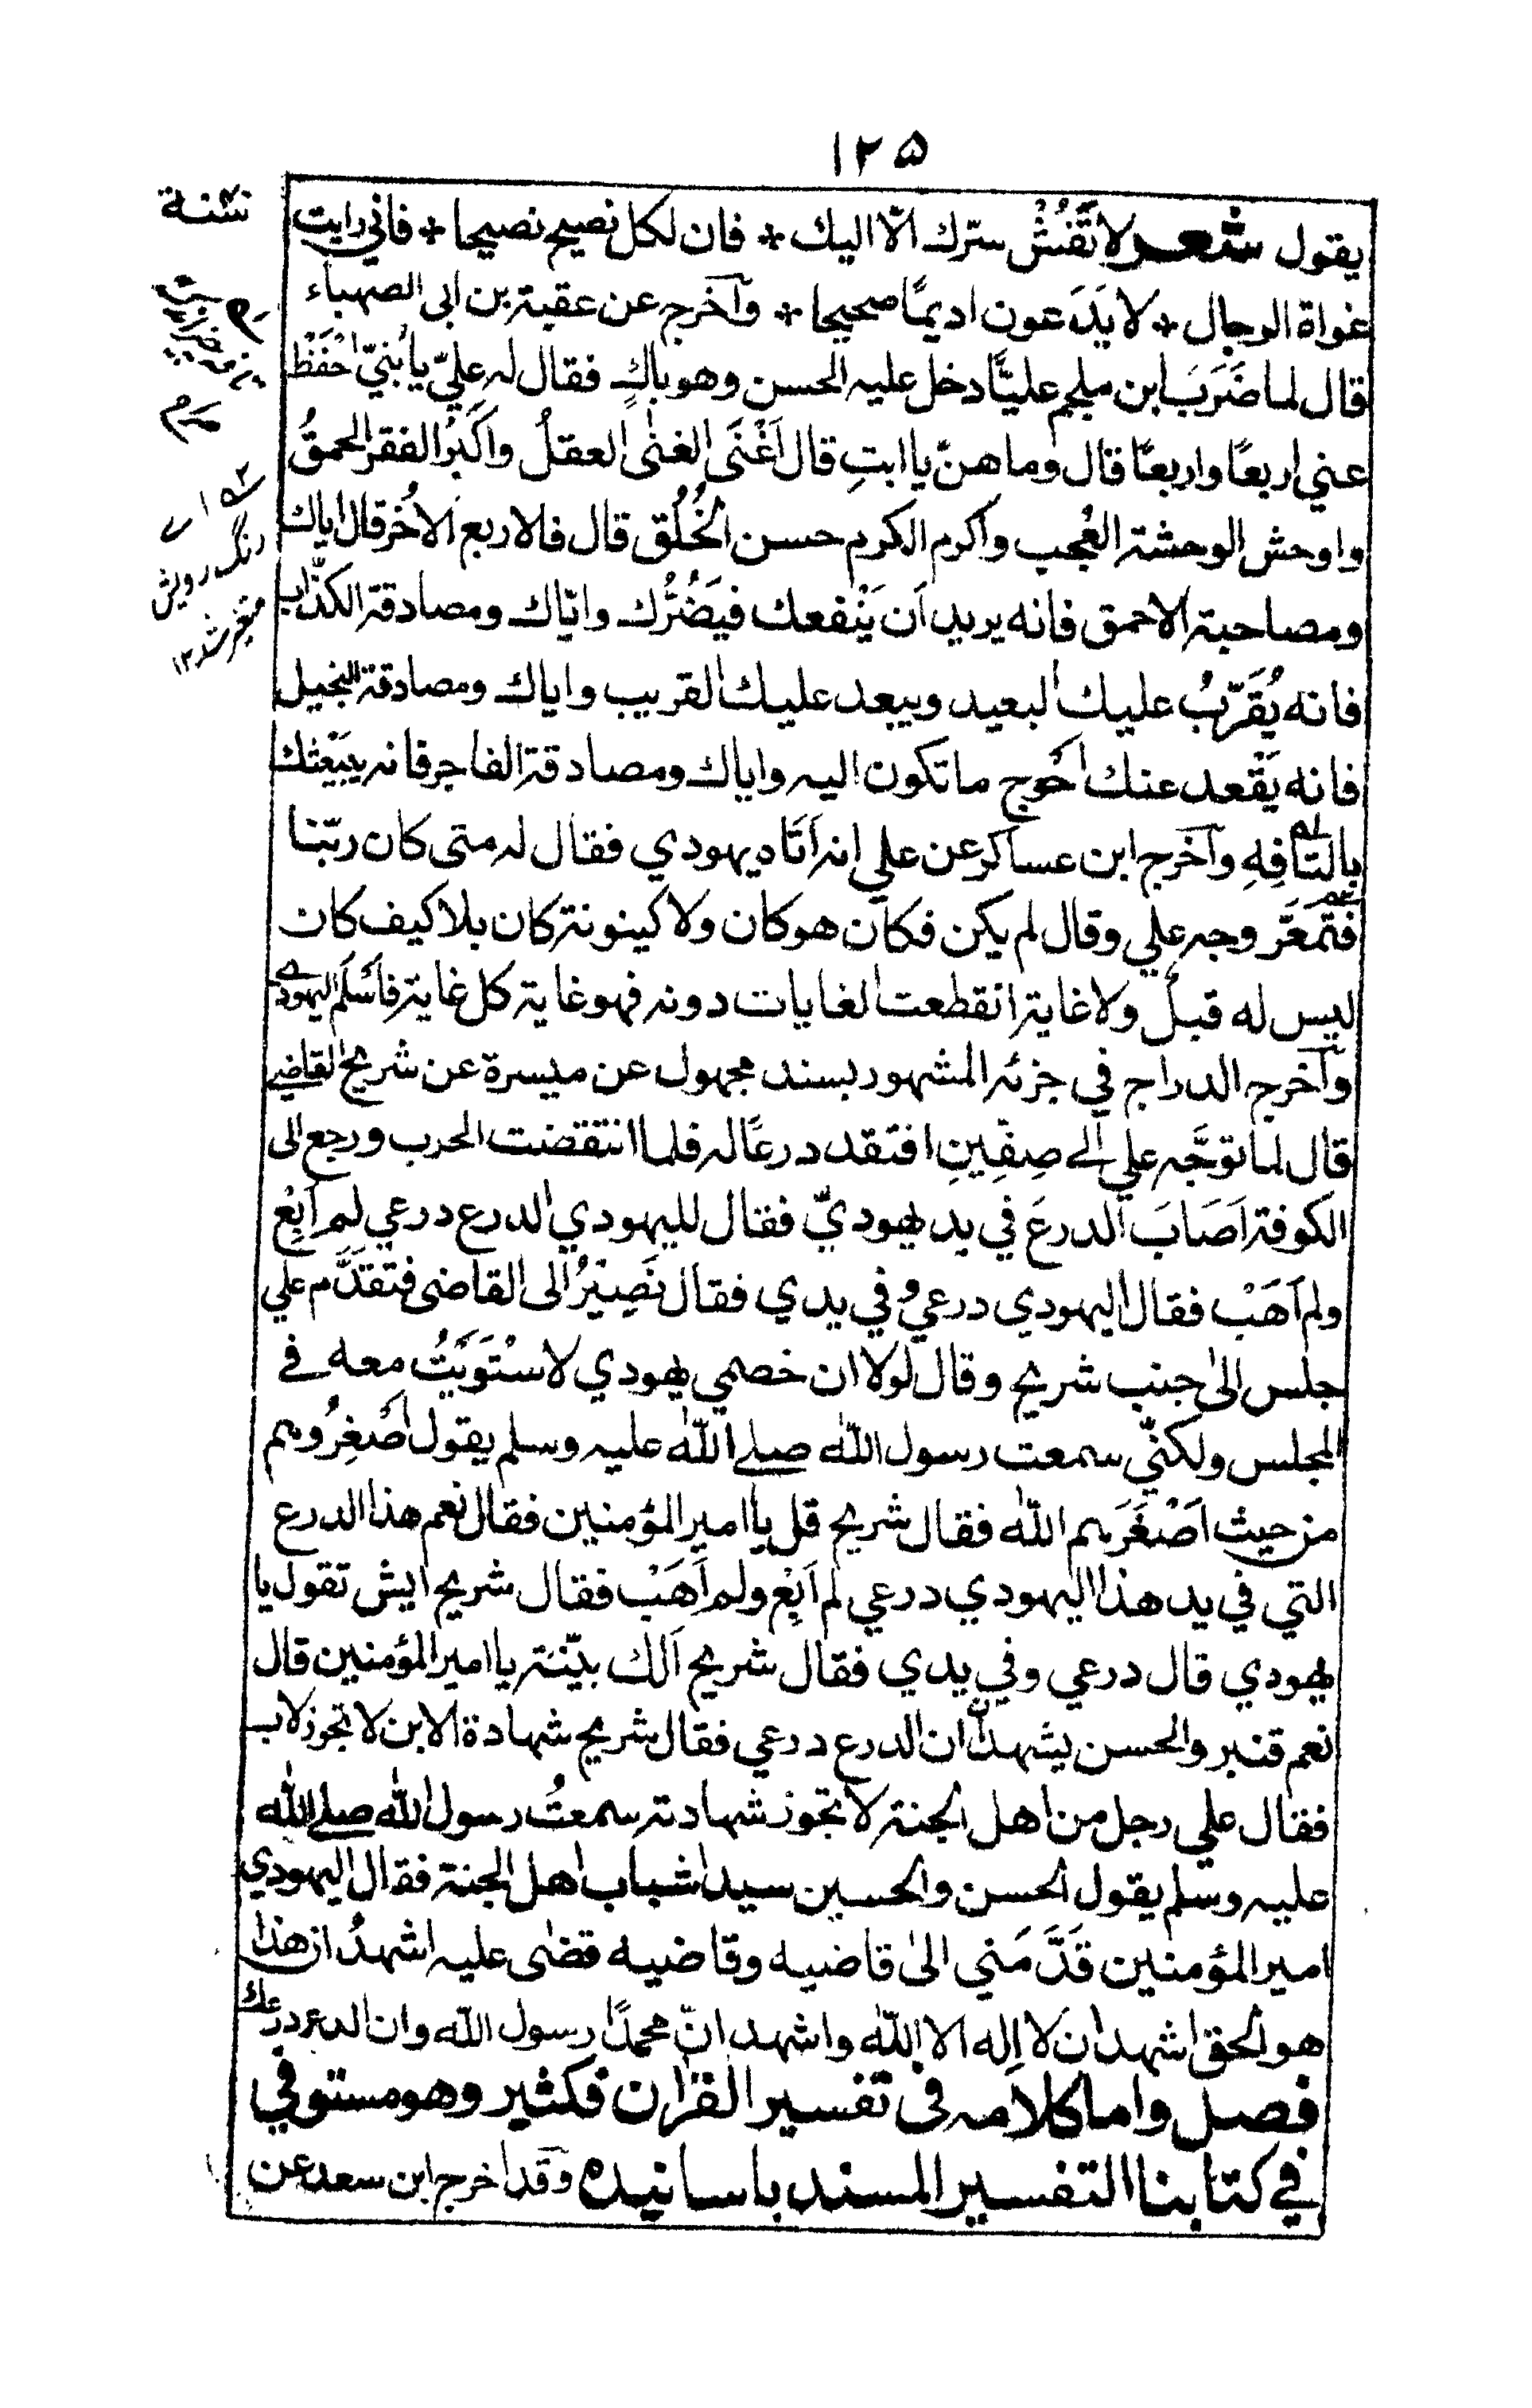 ۱۲۵
يقول شعر لا تَفُشْ سرّك الّا اليك * فان لكل نصيح نصيحا * فاني رايت
غواة الرجال * لا يَدَعون اديمًا صحيحا * وآخرج عن عقبة بن ابى الصهباء
قال لما ضَرَبَ ابن ملجم عليًّا دخل عليه الحسن وهو باكٍ فقال له عليّ يا بُنيّ احْفَظْ
عني اربعًا واربعًا قال وما هنّ يا ابتِ قال اَغْنَى الغنٰى العقلُ واكبَرُ الفقر الحمقُ
واوحش الوحشة العُجب واكرم الكرم حسن الخُلُق قال فالاربع الاُخر قال اياك
ومصاحبة الاحمق فانه يريد اَن يَنْفعك فيَضُرُّك وايّاك ومصادقة الكذّاب
فانه يُقَرّبُ عليك البعيد ويبعد عليك القريب واياك ومصادقة البخيل
فانه يَقْعد عنك احْوج ما تكون اليه واياك ومصادقة الفاجر فانه يبَيْعك
بالتَّافِهِ وآخرج ابن عساكر عن علي انه اَتَاه يهودي فقال له متى كان ربّنا
فَتَمَعَّر وجه علي وقال لم يكن فكان هو كان ولا كينونة كان بلا كيف كان
ليس له قبلٌ ولا غاية انقطعت الغايات دونه فهو غاية كل غاية فاَسْلَم اليهودي
وآخرج الدراج في جزئه المشهور بسند مجهول عن ميسرة عن شريح القاضي
قال لما توجَّه علي الى صِفّينِ افتقد درعًا له فلما انتقضت الحرب ورجع الى
الكوفة اَصَابَ الدرعَ في يد يهوديّ فقال لليهودي الدرع درعي لم اَبِعْ
ولم اَهَبْ فقال اليهودي درعي وفي يدي فقال نَصِيْرُ الى القاضى فتقدَّم علي
جلس الىٰ جنب شريح وقال لولا ان خصمي يهودي لاسْتَوَيْتُ معه في
المجلس ولكنّي سمعت رسول اللّٰه صلے اللّٰه عليه وسلم يقول اَصْغِرُوهم
من حيث اَصْغَرَهم اللّٰه فقال شريح قل يا امير المؤمنين فقال نعم هذا الدرع
التي في يد هذا اليهودي درعي لم اَبِعْ ولم اَهَبْ فقال شريح ايش تقول يا
يهودي قال درعي وفي يدي فقال شريح اَلَك بيّنة يا امير المؤمنين قال
نعم قنبر والحسن يشهدانّ ان الدرع درعي فقال شريح شهادة الابن لا تجوز لاب
فقال علي رجل من اهل الجنة لا تجوز شهادته سمعتُ رسول اللّٰه صلے اللّٰه
عليه وسلم يقول الحسن والحسين سيدا شباب اهل الجنة فقال اليهودي
امير المؤمنين قَدَّمَني الىٰ قاضيه وقاضيه قضٰى عليه اشهدُ ان هٰذا
هو الحق اشهد ان لا اِله الا اللّٰه واشهد انّ محمدًا رسول اللّٰه وان الدرع درعك
فصل واما كلامه فى تفسير القرٰان فكثير وهو مستوفي
في كتابنا التفسير المسند باسانيده وقد اخرج ابن سعد عن
رنگ رويش
متغير شد ۱۲